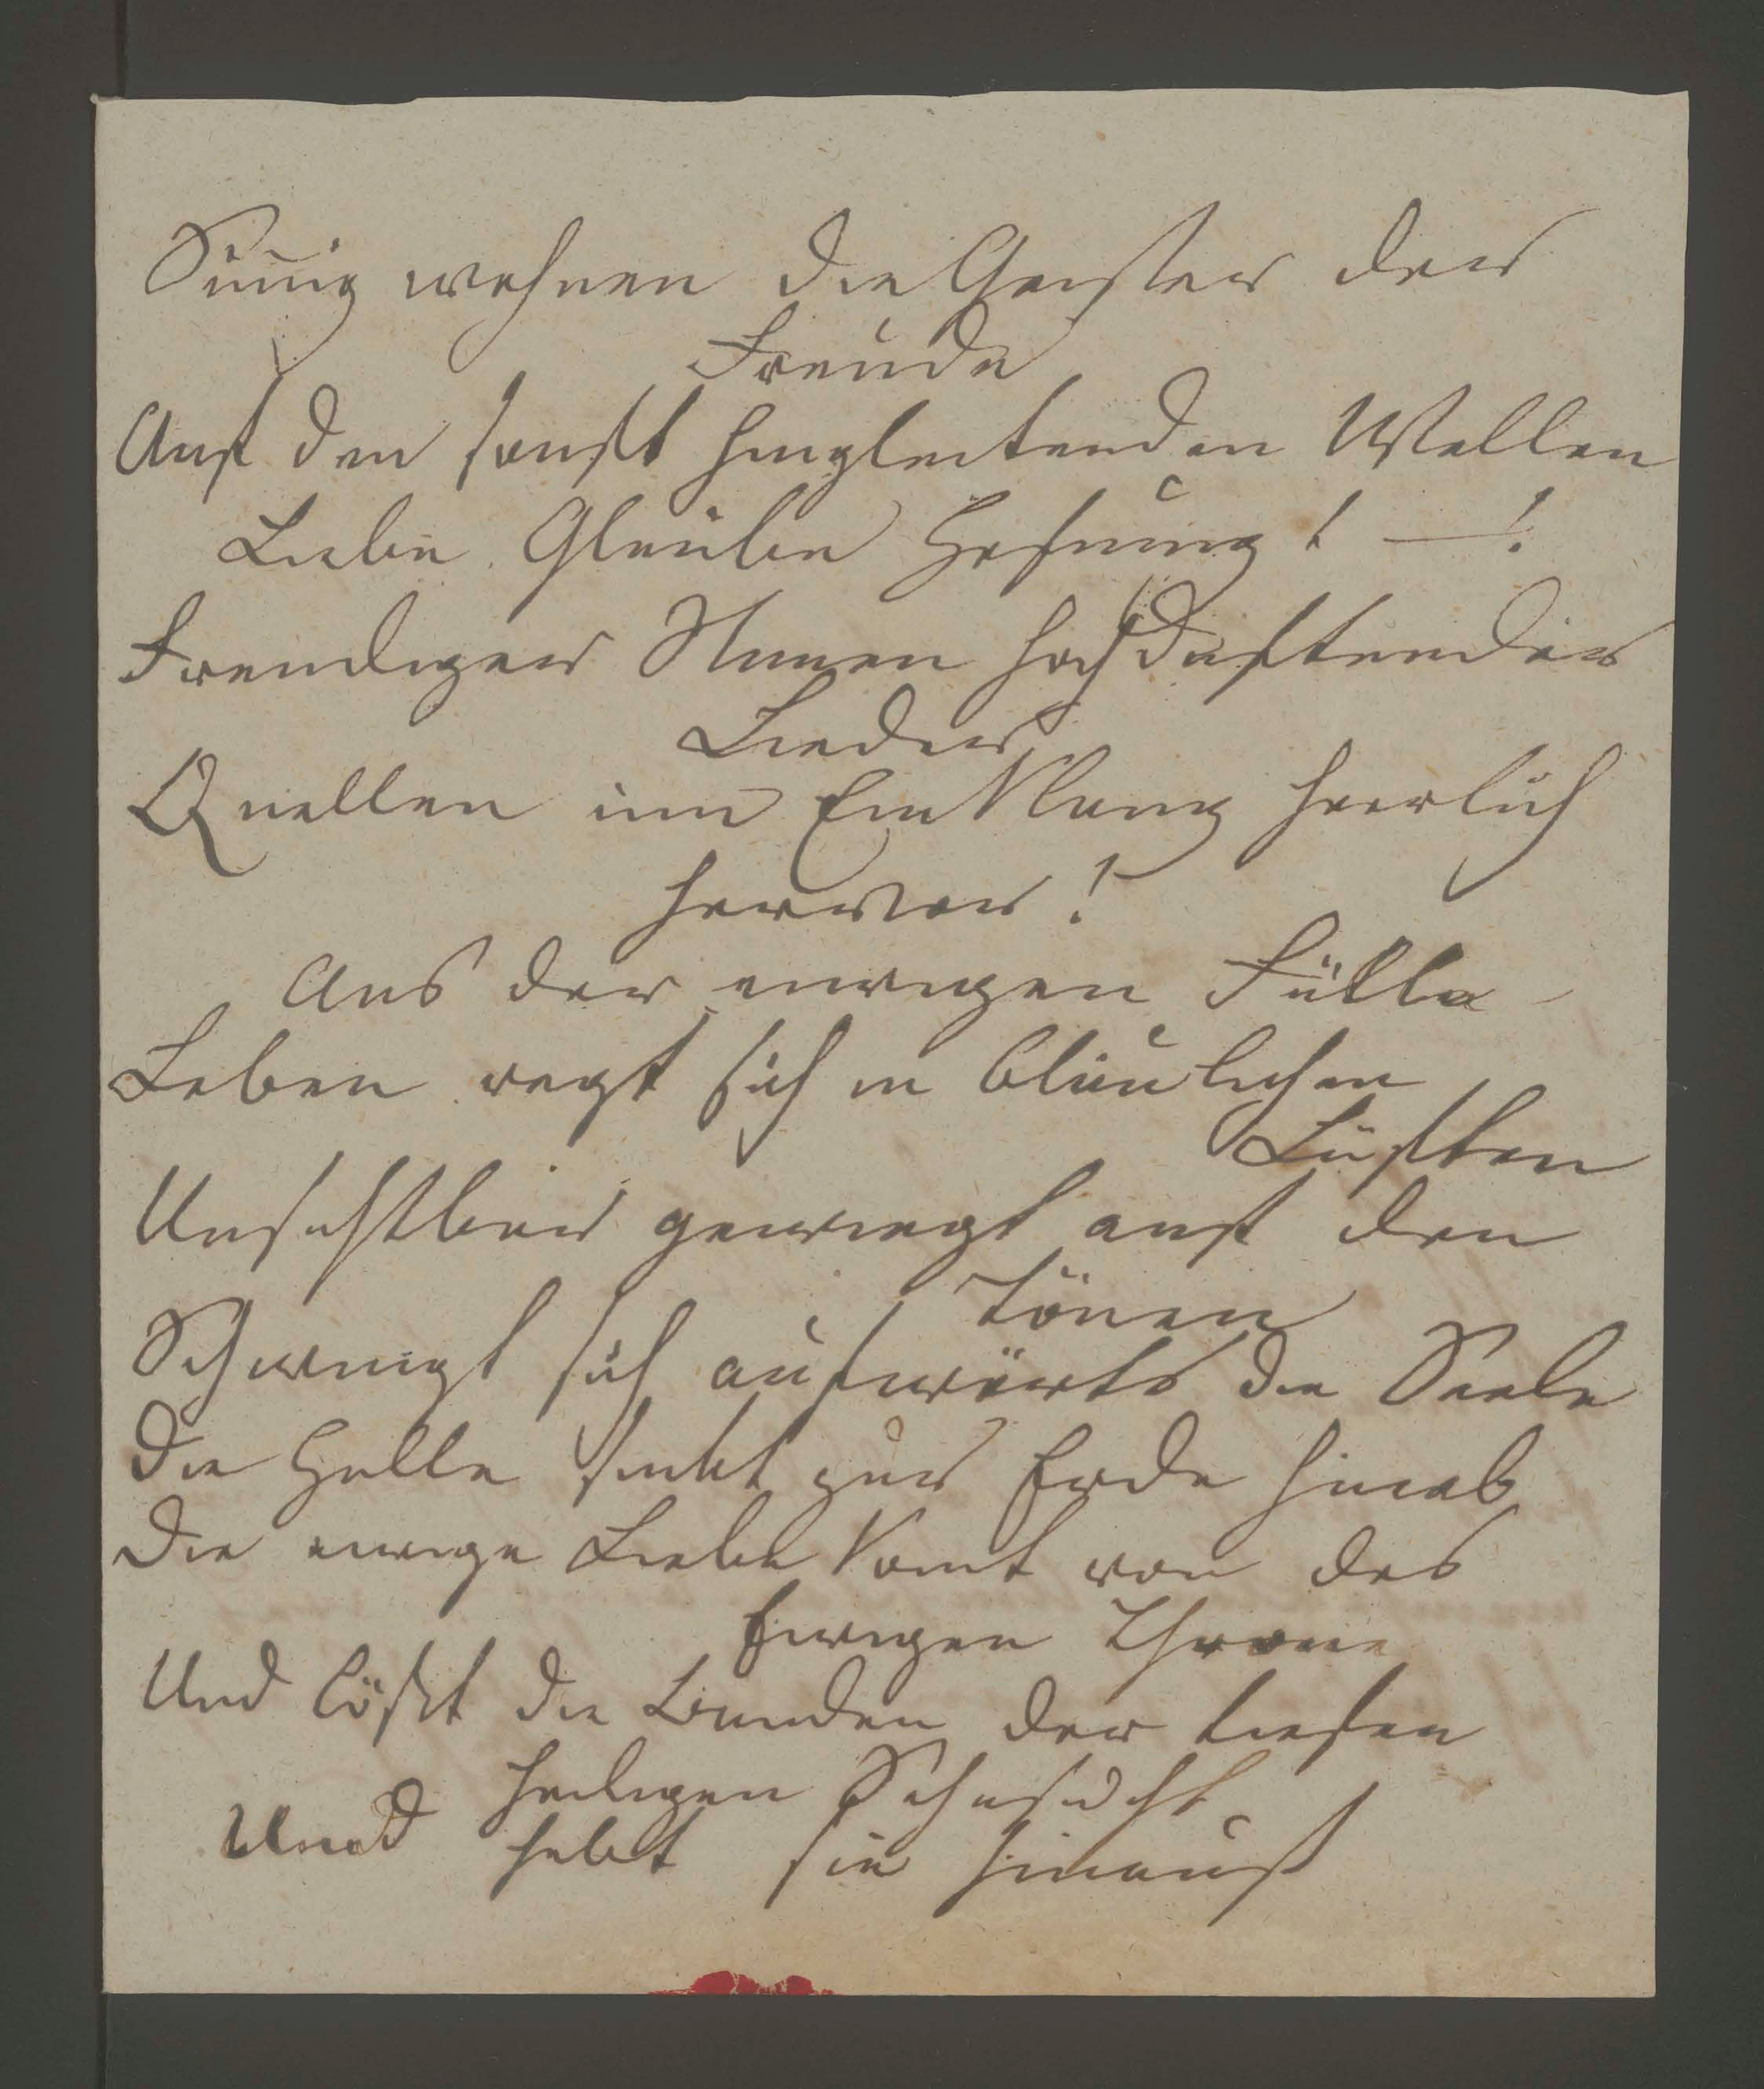 Sinnig wohnen die Geister der
Freude
Auf den sanft hingleitenden Wellen
Liebe Glaube Hofnung! —!
Freudigen hochduftender
Lieder
Quellen im Einklang herrlich
hervor!
Aus der ewigen Fülle
Leben regt sich in bläulichen
Lüften
Unsichtbar gewiegt auf den
Tönen
Schwingt sich aufwärts die Seele
Die Hülle sinkt zur Erde hinab
Die ewige Liebe komt von des
Ewigen Throne
Und lößt die Banden der tiefen
heiligen Sehnsucht
Und hebt sie hinauf